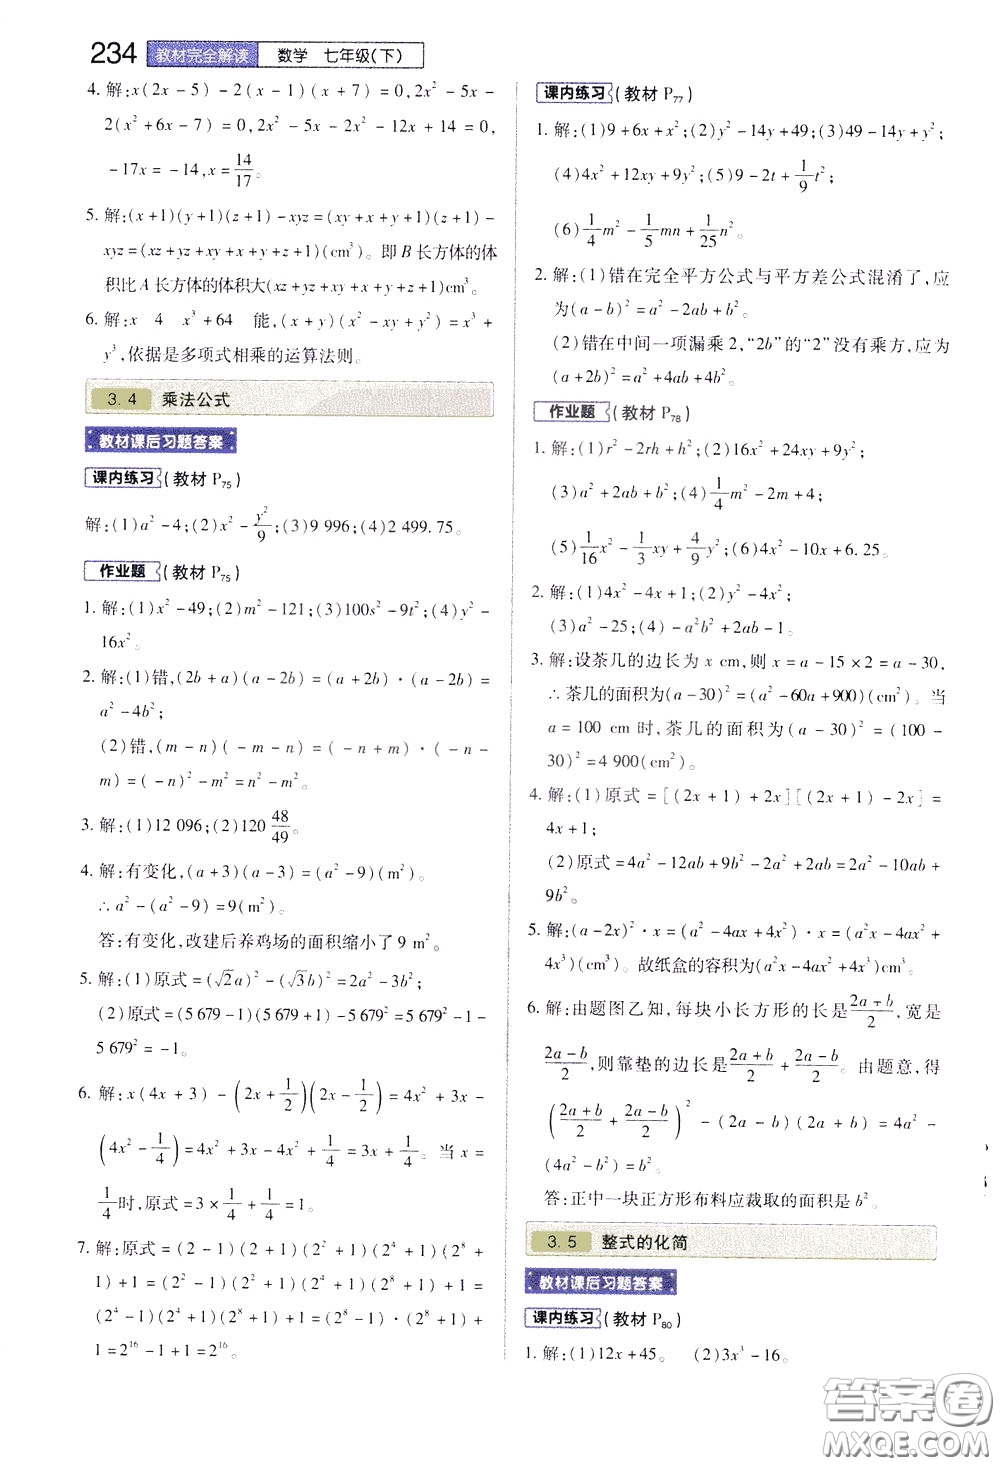 234 教材完全解读 数学 七年级(下)
4. 解:x(2x-5)-2(x-1)(x+7)=0,2x²-5x-
2(x²+6x-7)=0,2x²-5x-2x²-12x+14=0,
-17x=-14,x=14/17。
5. 解:(x+1)(y+1)(z+1)-xyz=(xy+x+y+1)(z+1)-
xyz=(xz+yz+xy+x+y+z+1)(cm³)。即B长方体的体
积比A长方体的体积大(xz+yz+xy+x+y+z+1)cm³。
6. 解:x 4 x³+64 能,(x+y)(x²-xy+y²)=x³+
y³,依据是多项式相乘的运算法则。
3.4 乘法公式
教材课后习题答案
课内练习(教材P₇₅)
解:(1)a²-4;(2)x²-y²/9;(3)9 996;(4)2 499.75。
作业题(教材P₇₅)
1. 解:(1)x²-49;(2)m²-121;(3)100s²-9t²;(4)y²-
16x²。
2. 解:(1)错,(2b+a)(a-2b)=(a+2b)·(a-2b)=
a²-4b²;
(2)错,(m-n)(-m-n)=(-n+m)·(-n-
m)=(-n)²-m²=n²-m²。
3. 解:(1)12 096;(2)120 48/49。
4. 解:有变化,(a+3)(a-3)=(a²-9)(m²)。
∴a²-(a²-9)=9(m²)。
答:有变化,改建后养鸡场的面积缩小了9 m²。
5. 解:(1)原式=(√2a)²-(√3b)²=2a²-3b²;
(2)原式=(5 679-1)(5 679+1)-5 679²=5 679²-1-
5 679²=-1。
6. 解:x(4x+3)-(2x+1/2)(2x-1/2)=4x²+3x-
(4x²-1/4)=4x²+3x-4x²+1/4=3x+1/4。当x=
1/4时,原式=3×1/4+1/4=1。
7. 解:原式=(2-1)(2+1)(2²+1)(2⁴+1)(2⁸+
1)+1=(2²-1)(2²+1)(2⁴+1)(2⁸+1)+1=
(2⁴-1)(2⁴+1)(2⁸+1)+1=(2⁸-1)(2⁸+1)+
1=2¹⁶-1+1=2¹⁶。
课内练习(教材P₇₇)
1. 解:(1)9+6x+x²;(2)y²-14y+49;(3)49-14y+y²;
(4)4x²+12xy+9y²;(5)9-2t+1/9t²;
(6)1/4m²-1/5mn+1/25n²。
2. 解:(1)错在完全平方公式与平方差公式混淆了,应
为(a-b)²=a²-2ab+b²。
(2)错在中间一项漏乘2,“2b”的“2”没有乘方,应为
(a+2b)²=a²+4ab+4b²。
作业题(教材P₇₈)
1. 解:(1)r²-2rh+h²;(2)16x²+24xy+9y²;
(3)a²+2ab+b²;(4)1/4m²-2m+4;
(5)1/16x²-1/3xy+4/9y²;(6)4x²-10x+6.25。
2. 解:(1)4x²-4x+1;(2)y²-4x²;
(3)a²-25;(4)-a²b²+2ab-1。
3. 解:设茶几的边长为x cm,则x=a-15×2=a-30,
∴茶几的面积为(a-30)²=(a²-60a+900)(cm²)。当
a=100 cm时,茶几的面积为(a-30)²=(100-
30)²=4 900(cm²)。
4. 解:(1)原式=[(2x+1)+2x][(2x+1)-2x]=
4x+1;
(2)原式=4a²-12ab+9b²-2a²+2ab=2a²-10ab+
9b²。
5. 解:(a-2x)²·x=(a²-4ax+4x²)·x=(a²x-4ax²+
4x³)(cm³)。故纸盒的容积为(a²x-4ax²+4x³)cm³。
6. 解:由题图乙知,每块小长方形的长是(2a+b)/2,宽是
(2a-b)/2,则靠垫的边长是(2a+b)/2+(2a-b)/2。由题意,得
((2a+b)/2+(2a-b)/2)²-(2a-b)(2a+b)=4a²-
(4a²-b²)=b²。
答:正中一块正方形布料应裁取的面积是b²。
3.5 整式的化简
教材课后习题答案
课内练习(教材P₈₀)
1. 解:(1)12x+45。 (2)3x³-16。
答案圈
MXQE.COM